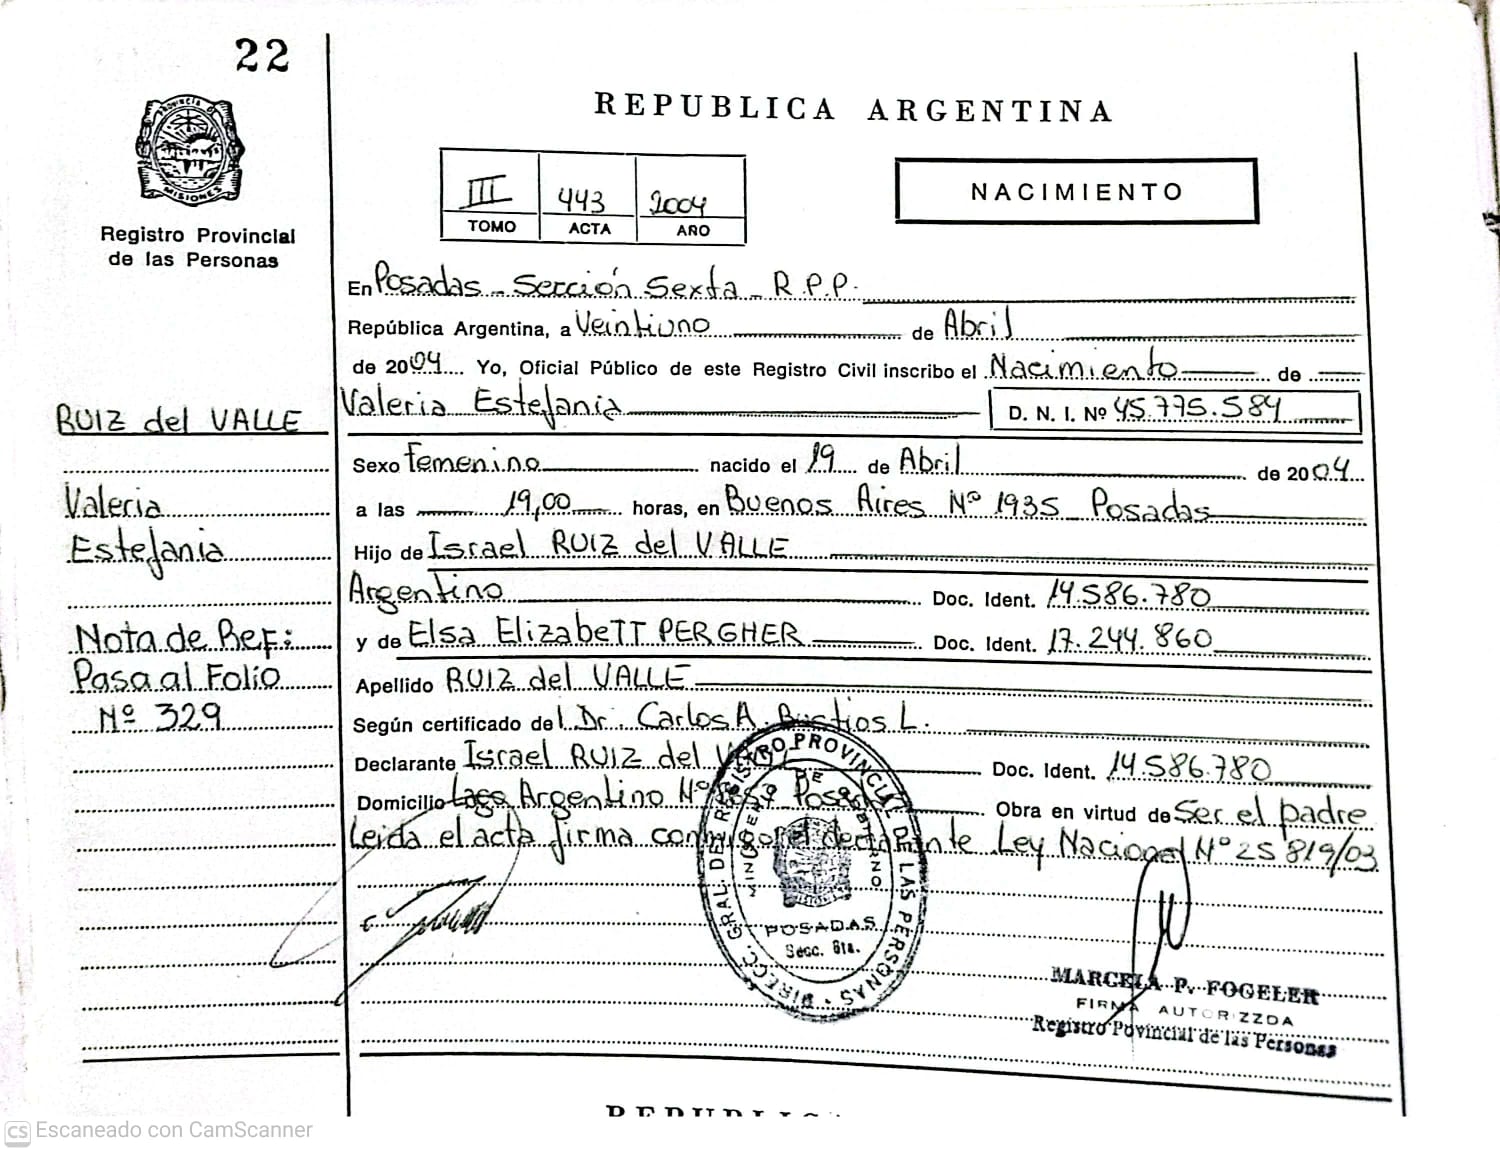 22
PROVINCIA DE
MISIONES
Registro Provincial
de las Personas
REPUBLICA ARGENTINA
III 443 2004
TOMO ACTA AÑO
NACIMIENTO
En Posadas - Sección Sexta - R.P.P.
República Argentina, a Veintiuno de Abril
de 2004 Yo, Oficial Público de este Registro Civil inscribo el Nacimiento de
Valeria Estefania D. N. I. Nº 45.775.584
Sexo Femenino nacido el 19 de Abril de 2004
a las 19,00 horas, en Buenos Aires Nº 1935 Posadas
Hijo de Israel RUIZ del VALLE
Argentino Doc. Ident. 14.586.780
y de Elsa ElizabeTT PERGHER Doc. Ident. 17.244.860
Apellido RUIZ del VALLE
Según certificado del Dr. Carlos A. Bustios L.
Declarante Israel RUIZ del Doc. Ident. 14.586.780
Domicilio Lago Argentino Nº Obra en virtud de Ser el padre
Leida el acta firma conmigo el declarante Ley Nacional Nº 25 819/03
RUIZ del VALLE
Valeria
Estefania
Nota de Ref:
Pasa al Folio
Nº 329
DIRECC. GRAL. DEL REGISTRO PROVINCIAL DE LAS PERSONAS
MINISTERIO DE GOBIERNO
POSADAS
Secc. 6ta.
MARCELA P. FOGELER
FIRMA AUTORIZZDA
Registro Povincial de las Personas
CS Escaneado con CamScanner